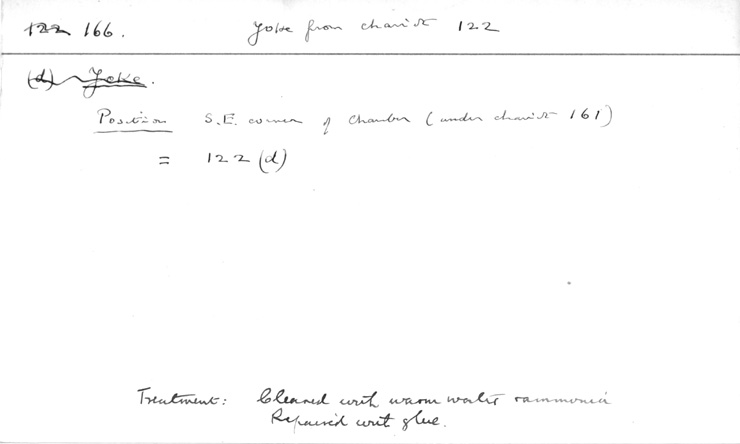 122 166. Yoke from chariot 122
(d) Yoke.
Position S.E. corner of Chamber (under chariot 161)
= 122 (d)
Treatment: Cleaned with warm water & ammonia
Repaired with glue.